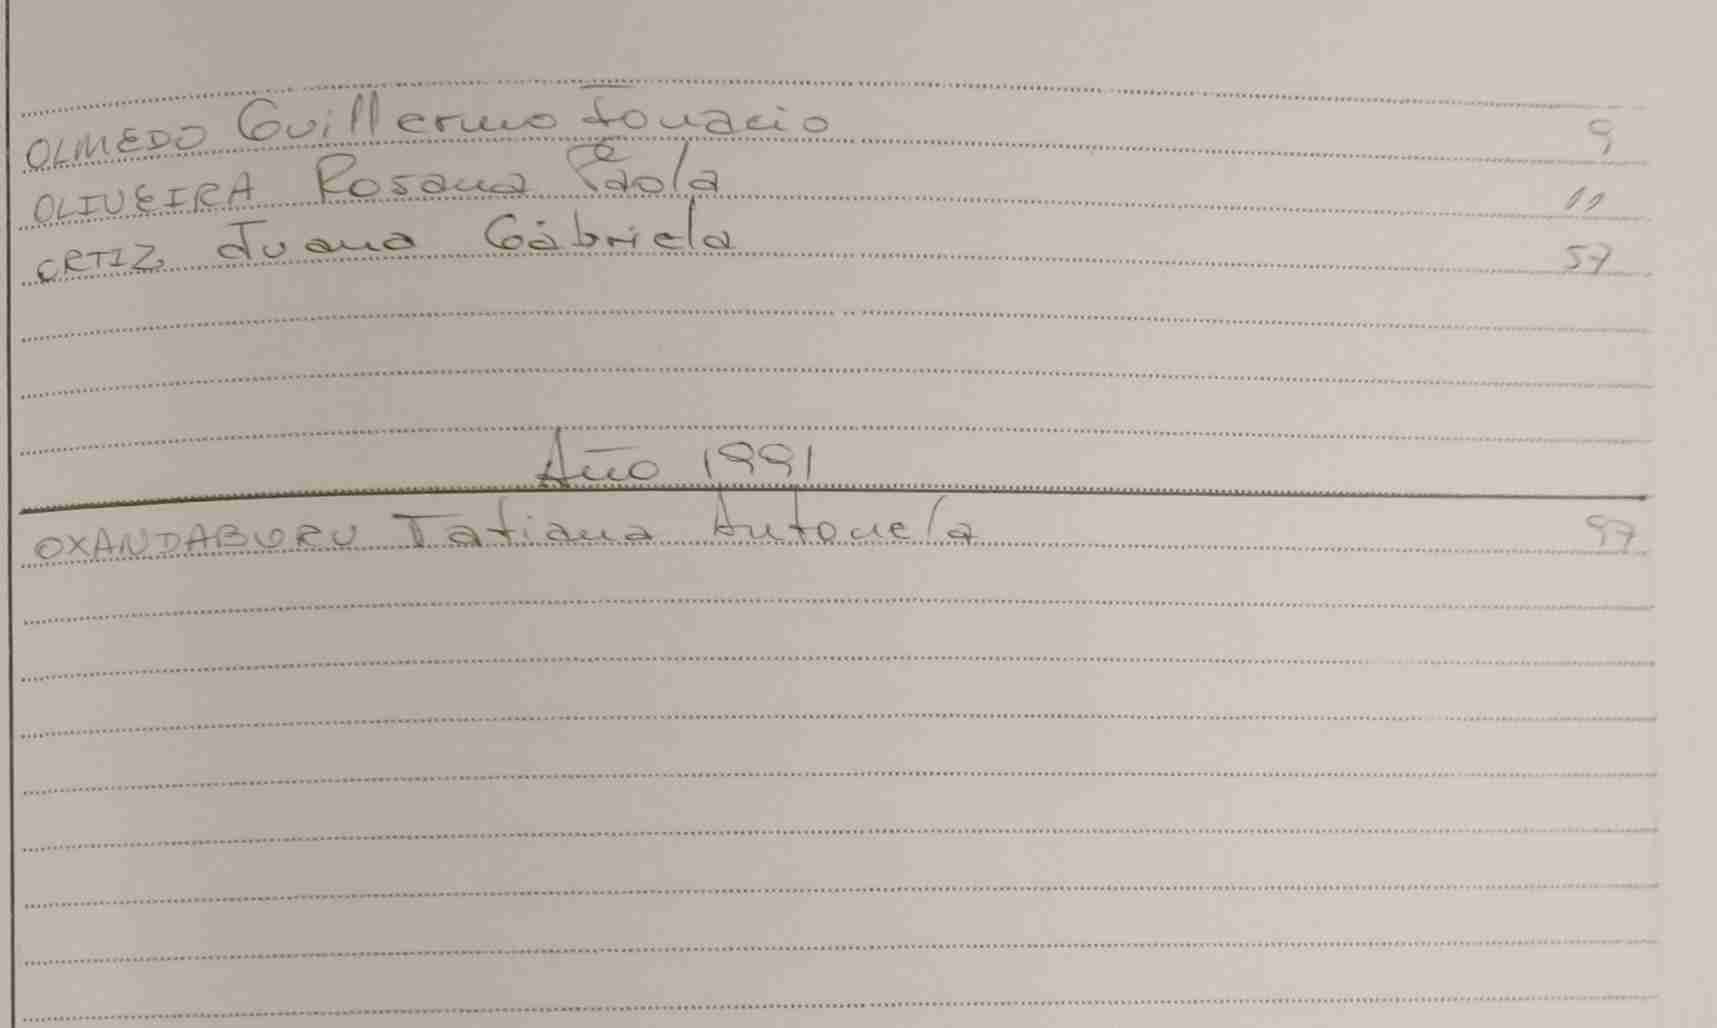 OLMEDO Guillermo Ignacio 9
OLIVEIRA Rosana Paola 11
ORTIZ Juana Gabriela 57
Año 1991
OXANDABURU Tatiana Antonela 97